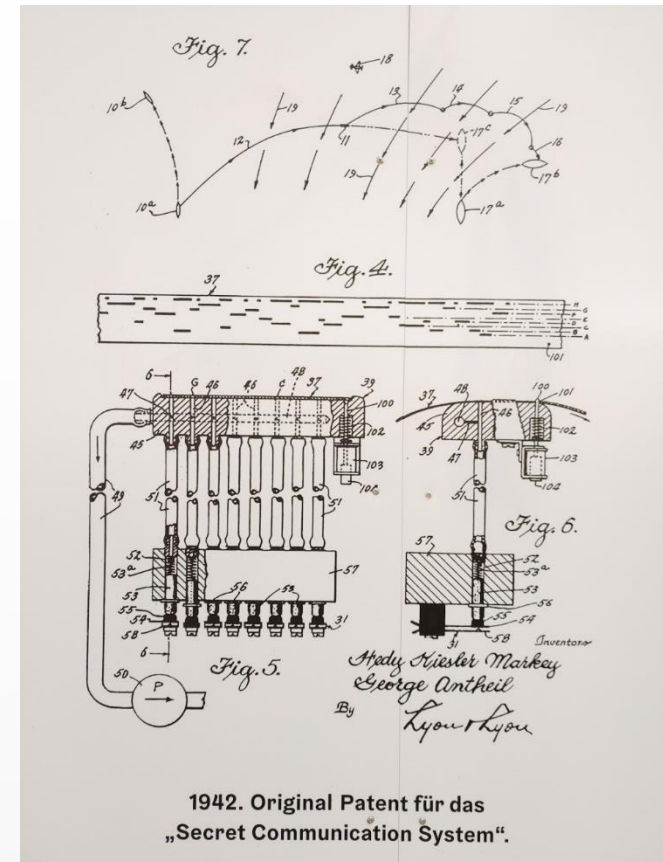 Fig. 7.
18
10b
19
13
14
15
19
12
11
17c
16
19
17b
10a
17a
Fig. 4.
37
H
G
F
E
D
C
B
A
101
6
47
G
46
46
C
48
37
39
100
102
45
103
104
49
51
51
52
53a
53
57
56
53
55
54
58
31
6
50
P
Fig. 5.
37
48
46
100
101
45
102
39
47
103
104
51
Fig. 6.
57
52
53a
53
56
55
54
58
31
Inventors
Hedy Kiesler Markey
George Antheil
By
Lyon & Lyon
1942. Original Patent für das
„Secret Communication System“.